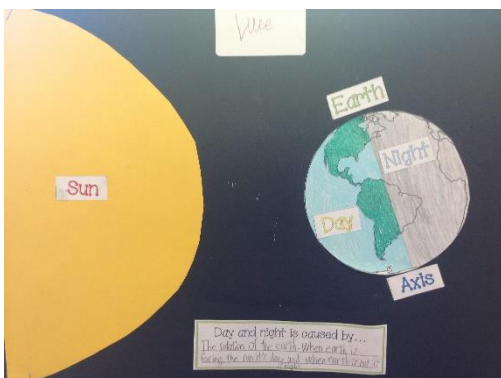 Earth
Night
Sun
Day
Axis
Day and night is caused by...
The rotation of the earth. When earth is
facing the sun it's day and when earth is not it
night